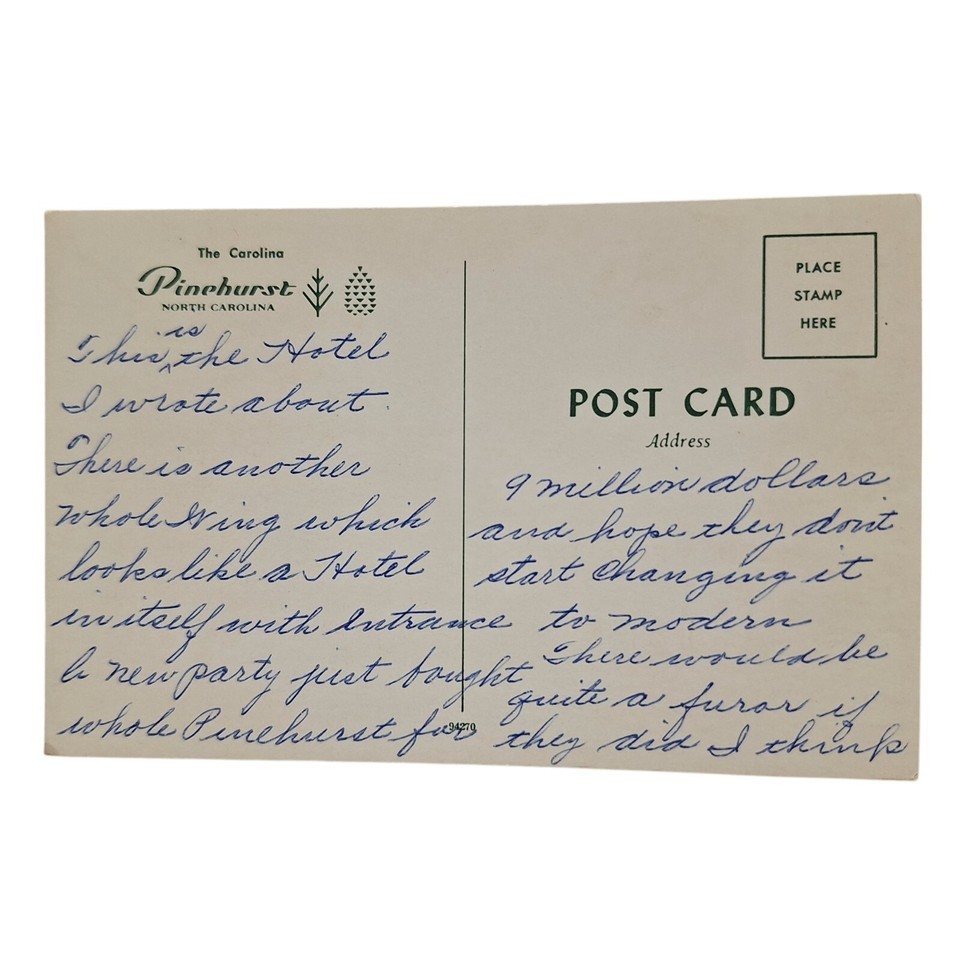 The Carolina
Pinehurst
NORTH CAROLINA
This is the Hotel
I wrote about.
There is another
whole Wing which
looks like a Hotel
in itself with Entrance
A new party just bought
whole Pinehurst for
94270
PLACE
STAMP
HERE
POST CARD
Address
9 million dollars
and hope they don't
start changing it
to modern
There would be
quite a furor if
they did I think